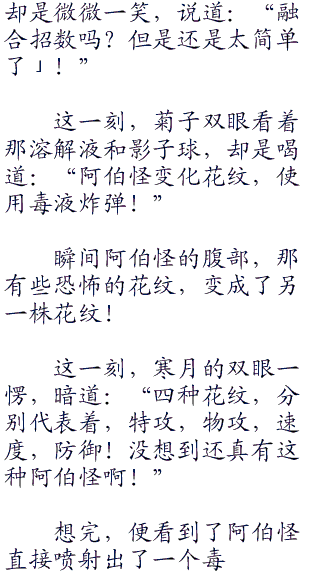 却是微微一笑，说道：“融
合招数吗？但是还是太简单
了」！”
这一刻，菊子双眼看着
那溶解液和影子球，却是喝
道：“阿伯怪变化花纹，使
用毒液炸弹！”
瞬间阿伯怪的腹部，那
有些恐怖的花纹，变成了另
一株花纹！
这一刻，寒月的双眼一
愣，暗道：“四种花纹，分
别代表着，特攻，物攻，速
度，防御！没想到还真有这
种阿伯怪啊！”
想完，便看到了阿伯怪
直接喷射出了一个毒